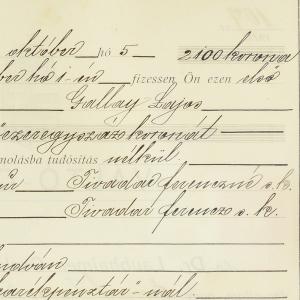 október hó 5 2100 korona
ber hó 1-én fizessen Ön ezen első
Gallay Lajos
ezeregyszáz koronát
molásba tudósítás nélkül.
úr Tivadar Ferenczné s. k.
Tivadar Ferencz s. k.
takarékpénztár"-nál.